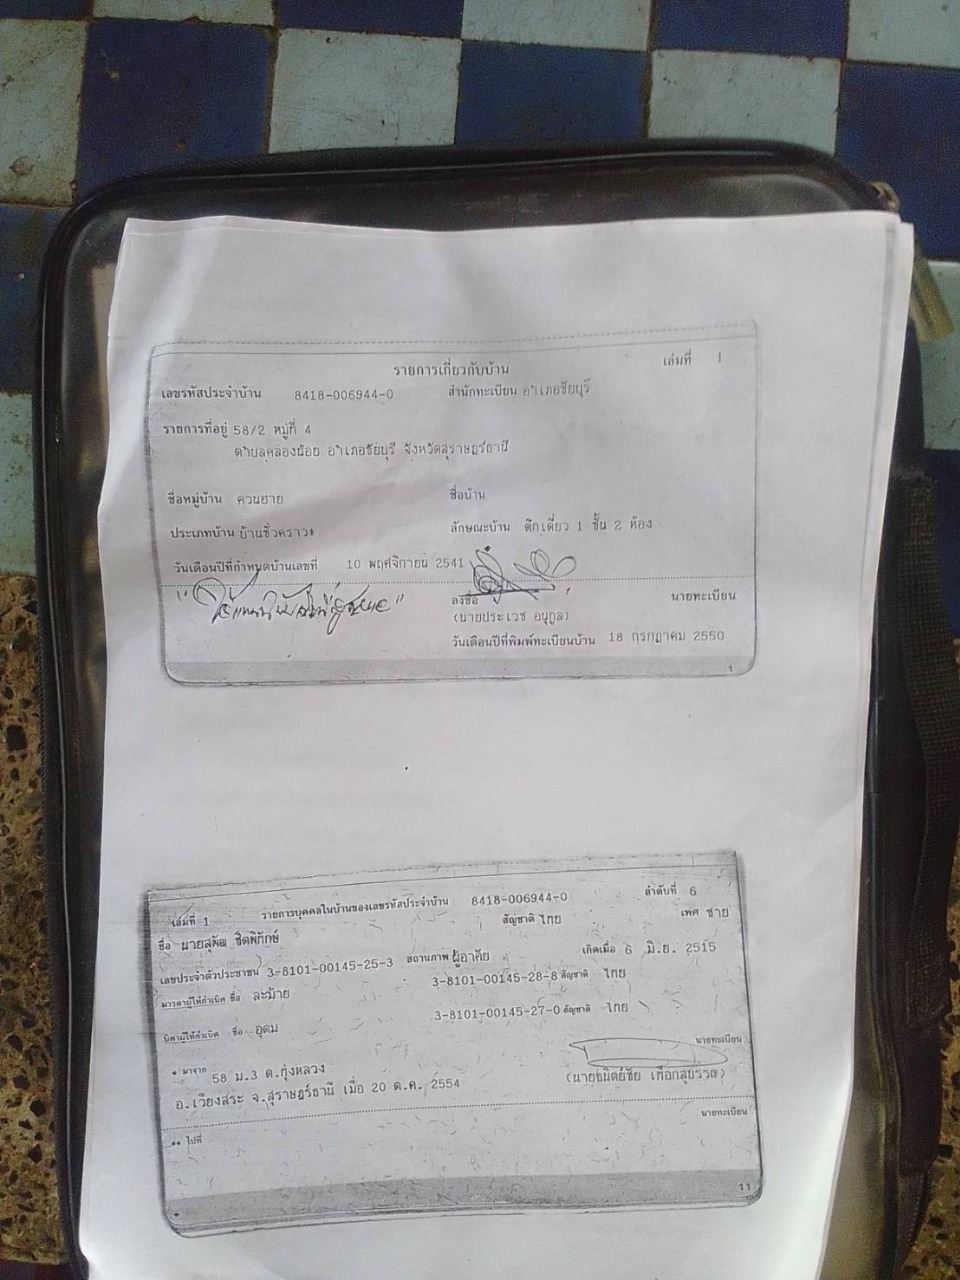 รายการเกี่ยวกับบ้าน เล่มที่ 1
เลขรหัสประจำบ้าน 8418-006944-0 สำนักทะเบียน อำเภอชัยบุรี
รายการที่อยู่ 58/2 หมู่ที่ 4
ตำบลคลองน้อย อำเภอชัยบุรี จังหวัดสุราษฎร์ธานี
ชื่อหมู่บ้าน ควนยาย ชื่อบ้าน
ประเภทบ้าน บ้านชั่วคราว* ลักษณะบ้าน ตึกเดี่ยว 1 ชั้น 2 ห้อง
วันเดือนปีที่กำหนดบ้านเลขที่ 10 พฤศจิกายน 2541
ลงชื่อ นายทะเบียน
(นายประเวช อนุกูล)
วันเดือนปีที่พิมพ์ทะเบียนบ้าน 18 กรกฎาคม 2550
1
เล่มที่ 1 รายการบุคคลในบ้านของเลขรหัสประจำบ้าน 8418-006944-0 ลำดับที่ 6
ชื่อ นายสุพัฒ ชิตพิทักษ์ สัญชาติ ไทย เพศ ชาย
เลขประจำตัวประชาชน 3-8101-00145-25-3 สถานภาพ ผู้อาศัย เกิดเมื่อ 6 มิ.ย. 2515
มารดาผู้ให้กำเนิด ชื่อ ละม้าย 3-8101-00145-28-8 สัญชาติ ไทย
บิดาผู้ให้กำเนิด ชื่อ อุดม 3-8101-00145-27-0 สัญชาติ ไทย
* มาจาก 58 ม.3 ต.ทุ่งหลวง นายทะเบียน
อ.เวียงสระ จ.สุราษฎร์ธานี เมื่อ 20 ต.ค. 2554
** ไปที่ นายทะเบียน
11